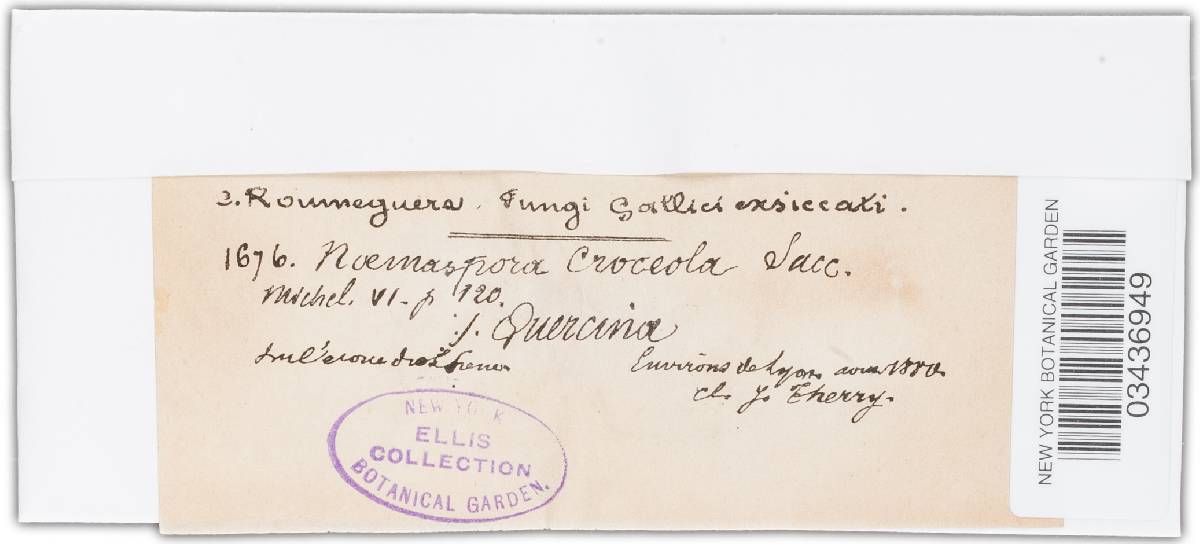 C. Roumeguera. Fungi Gallici exsiccati.
1676. Noemaspora Croceola Sacc.
Michel. VI - p 120.
f. Quercina
Sur l'écorce du chêne
Environs de Lyon aout 1880.
cl. J. Therry.
NEW YORK
ELLIS
COLLECTION
BOTANICAL GARDEN.
NEW YORK BOTANICAL GARDEN
03436949